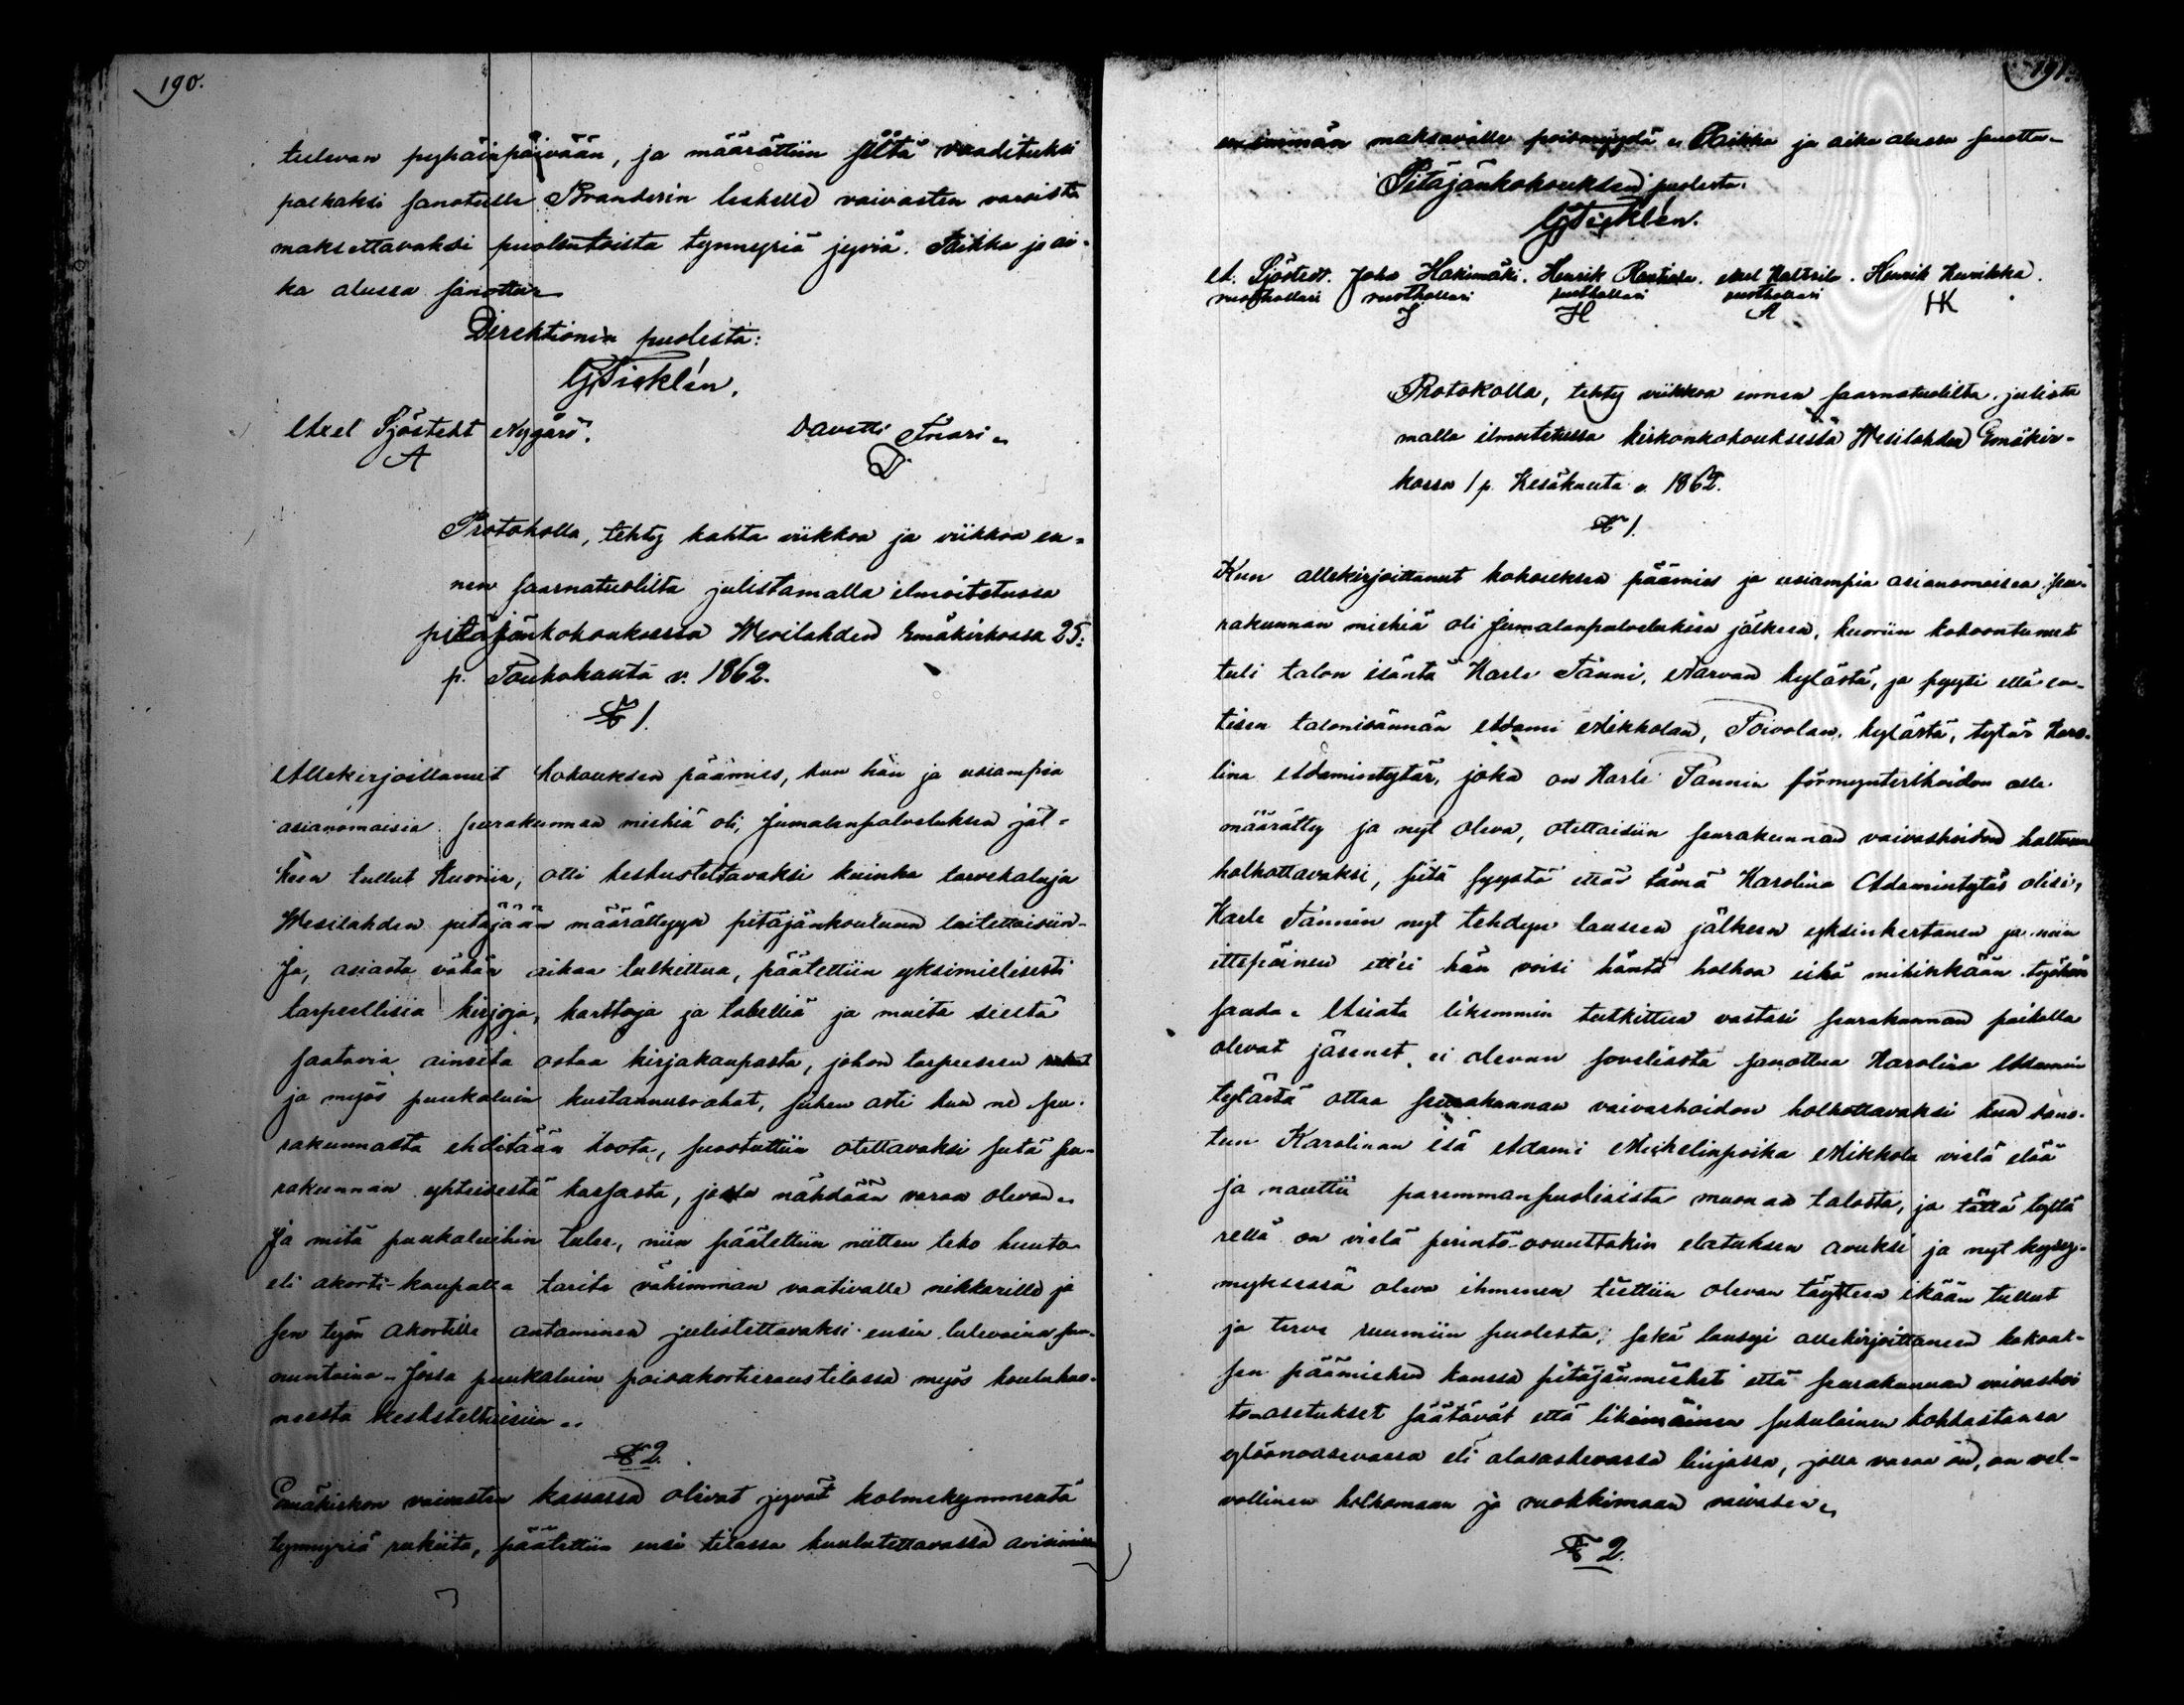 190.
tulevan pyhäinpäivään, ja määrättiin siltä vaadituksi
palkaksi sanotulle Branderin leskelle vaivasten varoista
maksettavaksi puolentoista tynnyriä jyviä. Paikka ja ai-
ka alussa sanottu
Direktionin puolesta:
Axel Sjöstedt Nygård. Davetti
A D.
Protokolla, tehty kahta viikkoa ja viikkoa en-
nen saarnatuolilta julistamalla ilmoitetussa
pitäjänkokouksessa Wesilahden Emäkirkossa 25.
p. Toukokuuta v. 1862.
§ 1.
Allekirjoittanut kokouksen päämies, kun hän ja usiampia
asianomaisia seurakunnan miehiä oli, Jumalanpalveluksen jäl-
keen tullut kuoriin, otti keskusteltavaksi kuinka tarvekaluja
Wesilahden pitäjään määrättyyn pitäjänkouluun laitettaisiin.
Ja, asiasta vähän aikaa tutkittua, päätettiin yksimielisesti
tarpeellisia kirjoja, karttoja ja tabelliä ja muita siestä
saatavia aineita ostaa kirjakaupasta, johon tarpeeseen rahat
ja myös puukaluin kustannusrahat, siihen asti kun ne seu-
rakunnasta ehditään koota, suostuttiin otettavaksi seu-
rakunnan yhteisestä kassasta, josta nähdään varaa olevan.
Ja mitä puukaluihin tulee, niin päätettiin niitten teko huuto
eli akorti-kaupalla tarita vähimmän vaativalle nikkarille ja
sen työn akortille antaminen julistettavaksi ensin tulevaina sun-
nuntaina. Jossa puukaluin poisakorteeraustilassa myös kouluhuo-
neesta keskusteltaisiin.
§ 2.
Emäkirkon vaivasten kassassa olivat jyvät kolmekymmentä
tynnyriä rukiita, päätettiin ensi tilassa kuulutettavassa
191.
enimmän maksavalle poismyydä. Paikka ja aika alussa sanottu.
Pitäjänkokouksen puolesta.
A. Sjöstedt. Juho Hakimäki. Henrik Rantala. Axel Kaltsila. Henrik Kurikka.
ruothollari ruothollari ruothollari ruothollari
J H A HK
Protokolla, tehty viikkoa ennen saarnatuolilta julista
malla ilmoitetussa kirkonkokouksessa Wesilahden Emäkir-
kossa 1 p. Kesäkuuta v. 1862.
§ 1.
Kun allekirjoittanut kokouksen päämies ja usiampia asianomaisen seu-
rakunnan miehiä oli Jumalanpalveluksen jälkeen, kuoriin kokoontunut
tuli talon isäntä Karle Tanni, Narvan kylästä, ja pyysi että en-
tisen talonisännän Adami Mikkolan, Toivolan kylästä, tytär Karo-
lina Adamintytär, joka on Karle Tannin förmynterihoidon alle
määrätty ja nyt oleva, otettaisiin seurakunnan vaivashoidon haltuun
holhottavaksi, siitä syystä että tämä Karolina Adamintytär olisi,
Karle Tannin nyt tehdyn lauseen jälkeen yksinkertanen ja niin
ittepäinen ett'ei hän voisi häntä holhoa eikä mihinkään työhön
saada. Asiata likemmin tutkittua vastasi seurakunnan paikalla
olevat jäsenet, ei olevan soveliasta sanottua Karolina Adamin
tytärtä ottaa seurakunnan vaivashoidon holhottavaksi kun sano-
tun Karolinan isä Adami Mickelinpoika Mikkola vielä elää
ja nauttii paremmanpuolisista muonaa talosta, ja tällä tyttä
rellä on vielä perintö-osuuttakin elatuksen avuksi ja nyt kysy-
myksessä oleva ihminen tiettiin olevan täyteen ikään tullut
ja terve ruumiin puolesta; sekä lausyi allekirjoittaneen kokouk-
sen päämiehen kanssa pitäjänmiehet että seurakunnan vaivashoi
to-asetukset säätävät että likimäinen sukulainen kohdastansa
ylösnousevassa eli alasaskevassa linjassa, jolla varaa on, on vel-
vollinen holhomaan ja ruokkimaan vaivasen.
§ 2.